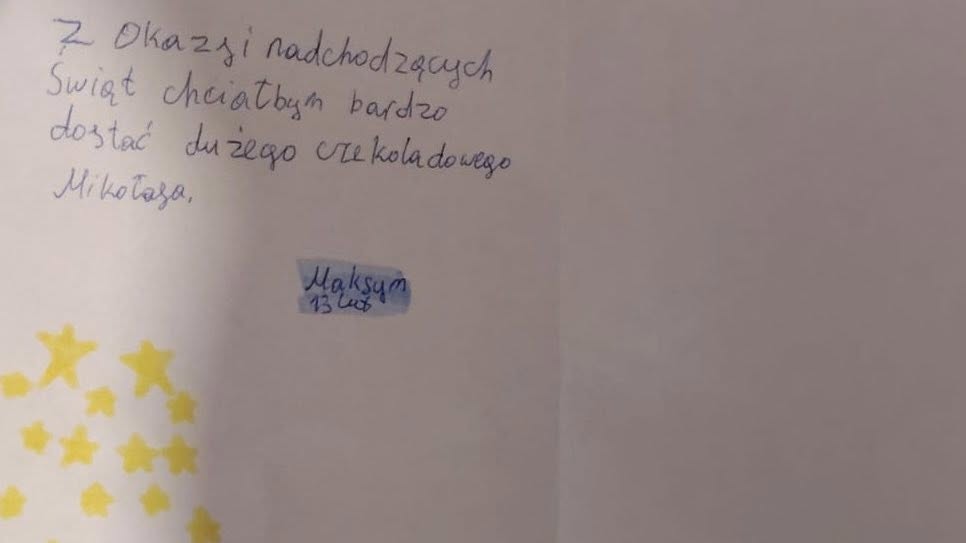 Z Okazji nadchodzących
Świąt chciałbym bardzo
dostać dużego czekoladowego
Mikołaja.
Maksym
13 lat